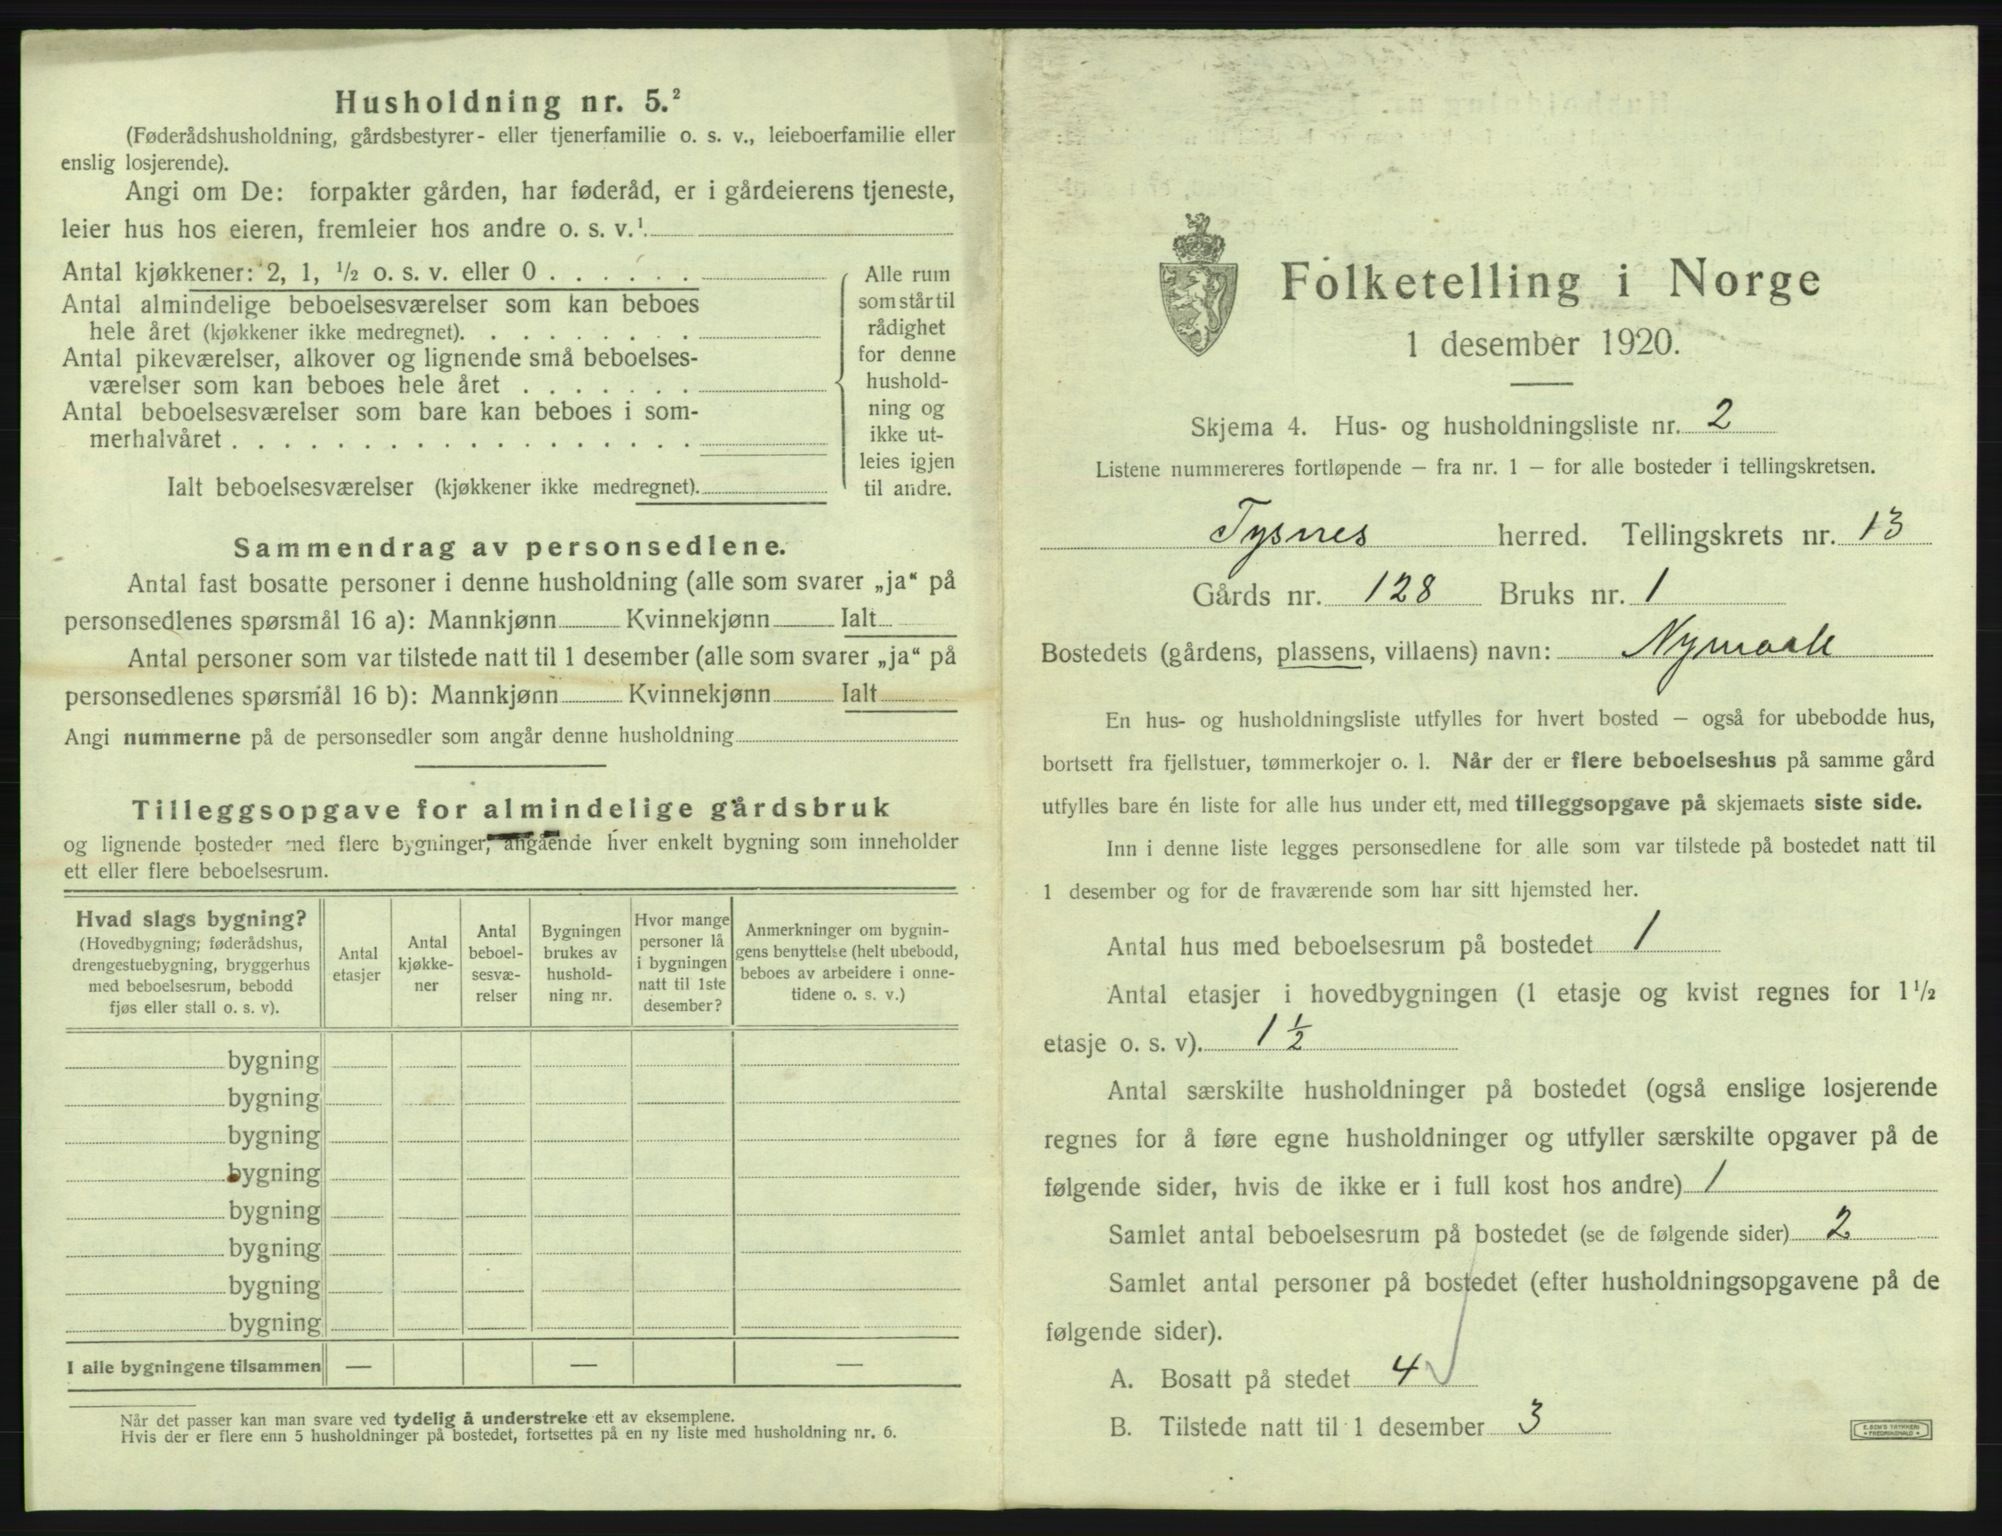 Husholdning nr. 5.²
(Føderådshusholdning, gårdsbestyrer- eller tjenerfamilie o. s. v., leieboerfamilie eller
enslig losjerende).
Angi om De: forpakter gården, har føderåd, er i gårdeierens tjeneste,
leier hus hos eieren, fremleier hos andre o. s. v.¹
Antal kjøkkener: 2, 1, ½ o. s. v. eller 0 . . . . . .
Antal almindelige beboelsesværelser som kan beboes
hele året (kjøkkener ikke medregnet). . . . . . . . .
Antal pikeværelser, alkover og lignende små beboelses-
værelser som kan beboes hele året . . . . . . .
Antal beboelsesværelser som bare kan beboes i som-
merhalvåret . . . . . . . . . . . . . . . . . .
Ialt beboelsesværelser (kjøkkener ikke medregnet).
Alle rum
som står til
rådighet
for denne
hushold-
ning og
ikke ut-
leies igjen
til andre.
Sammendrag av personsedlene.
Antal fast bosatte personer i denne husholdning (alle som svarer „ja“ på
personsedlenes spørsmål 16 a): Mannkjønn Kvinnekjønn Ialt
Antal personer som var tilstede natt til 1 desember (alle som svarer „ja“ på
personsedlenes spørsmål 16 b): Mannkjønn Kvinnekjønn Ialt
Angi nummerne på de personsedler som angår denne husholdning
Tilleggsopgave for almindelige gårdsbruk
og lignende bosteder med flere bygninger, angående hver enkelt bygning som inneholder
ett eller flere beboelsesrum.
Hvad slags bygning?
(Hovedbygning; føderådshus,
drengestuebygning, bryggerhus
med beboelsesrum, bebodd
fjøs eller stall o. s. v).
Antal
etasjer
Antal
kjøkke-
ner
Antal
beboel-
sesvæ-
relser
Bygningen
brukes av
hushold-
ning nr.
Hvor mange
personer lå
i bygningen
natt til 1ste
desember?
Anmerkninger om bygnin-
gens benyttelse (helt ubebodd,
beboes av arbeidere i onne-
tidene o. s. v.)
bygning
bygning
bygning
bygning
bygning
bygning
bygning
bygning
I alle bygningene tilsammen — — —
Når det passer kan man svare ved tydelig å understreke ett av eksemplene.
Hvis der er flere enn 5 husholdninger på bostedet, fortsettes på en ny liste med husholdning nr. 6.
Folketelling i Norge
1 desember 1920.
Skjema 4. Hus- og husholdningsliste nr. 2
Listene nummereres fortløpende — fra nr. 1 — for alle bosteder i tellingskretsen.
Tysnes herred. Tellingskrets nr. 13
Gårds nr. 128 Bruks nr. 1
Bostedets (gårdens, plassens, villaens) navn: Nymark
En hus- og husholdningsliste utfylles for hvert bosted — også for ubebodde hus,
bortsett fra fjellstuer, tømmerkojer o. l. Når der er flere beboelseshus på samme gård
utfylles bare én liste for alle hus under ett, med tilleggsopgave på skjemaets siste side.
Inn i denne liste legges personsedlene for alle som var tilstede på bostedet natt til
1 desember og for de fraværende som har sitt hjemsted her.
Antal hus med beboelsesrum på bostedet 1
Antal etasjer i hovedbygningen (1 etasje og kvist regnes for 1½
etasje o. s. v). 1½
Antal særskilte husholdninger på bostedet (også enslige losjerende
regnes for å føre egne husholdninger og utfyller særskilte opgaver på de
følgende sider, hvis de ikke er i full kost hos andre) 1
Samlet antal beboelsesrum på bostedet (se de følgende sider) 2
Samlet antal personer på bostedet (efter husholdningsopgavene på de
følgende sider).
A. Bosatt på stedet 4
B. Tilstede natt til 1 desember 3